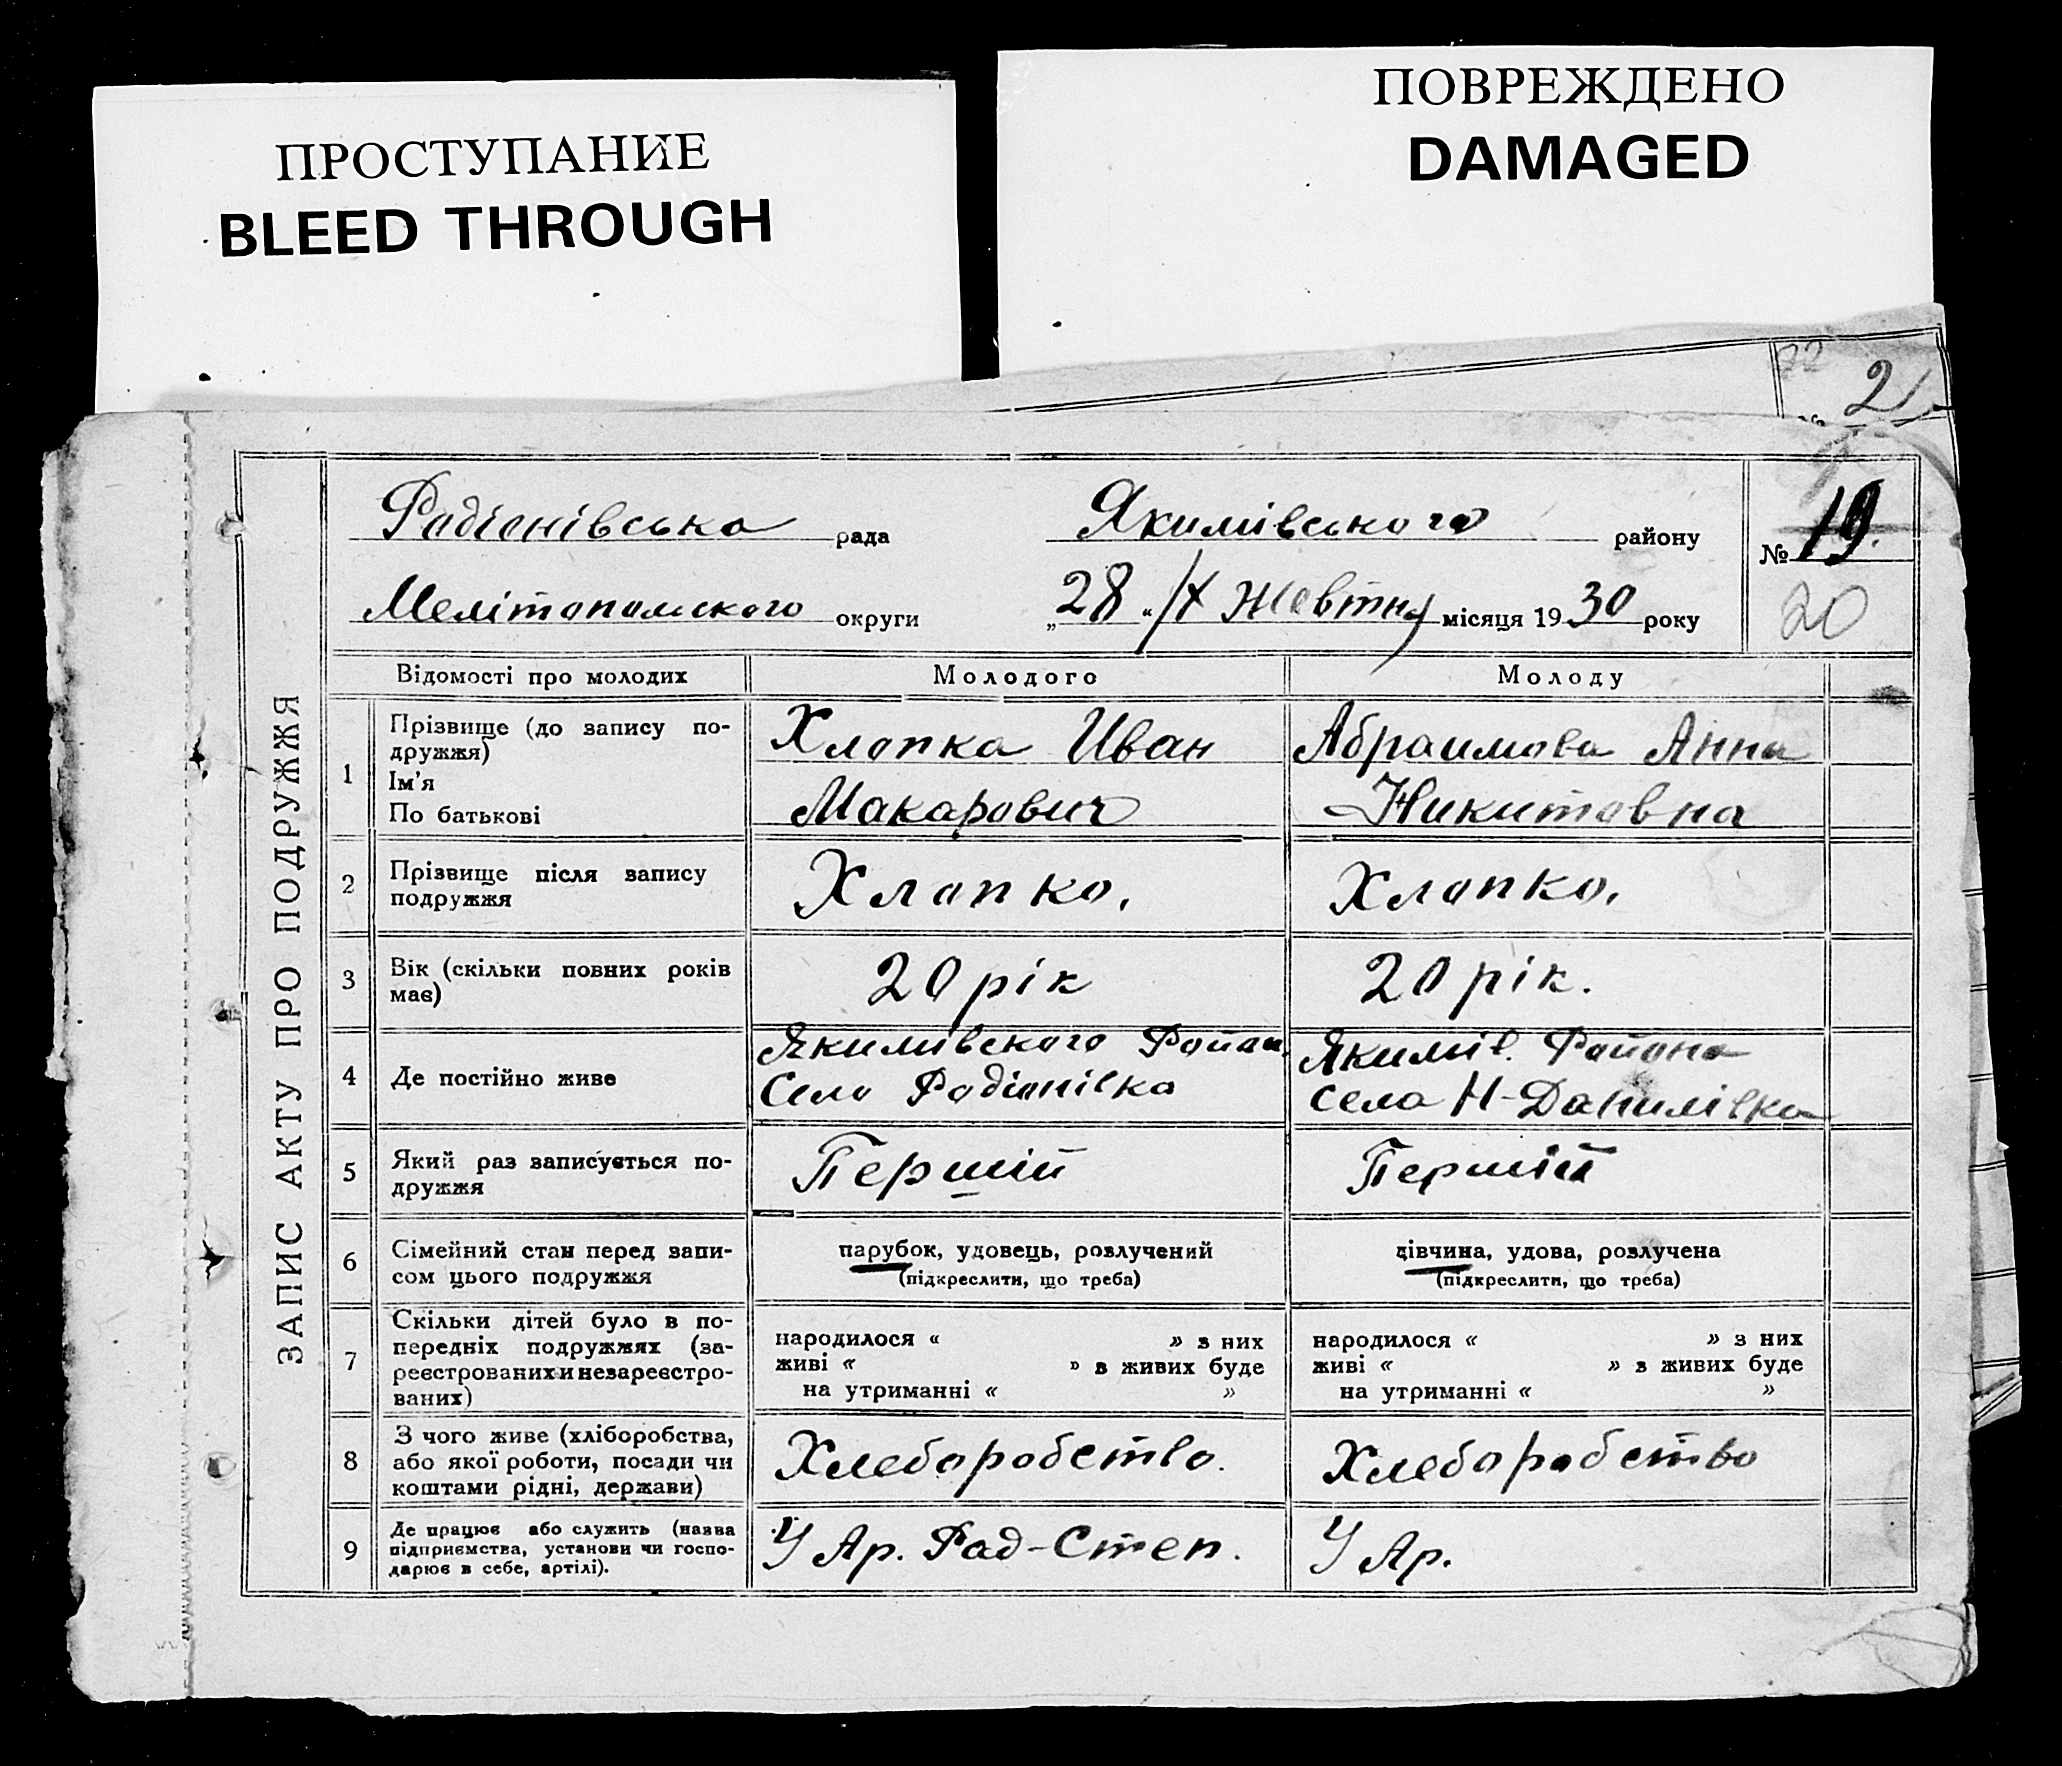 ПРОСТУПАНИЕ
BLEED THROUGH
ПОВРЕЖДЕНО
DAMAGED
22
21
№
ЗАПИС АКТУ ПРО ПОДРУЖЖЯ
Радіонівська рада Якимівського району № 19.
Мелітопольского округи „28 “ /X Жовтня місяця 1930 року
20
Відомості про молодих Молодого Молоду
1 Прізвище (до запису по-
дружжя)
Ім'я
По батькові
Хлопка Иван
Макарович
Абраимова Анна
Никитовна
2 Прізвище після запису
подружжя
Хлопко.
Хлопко.
3 Вік (скільки повних років
має)
20 рік
20 рік.
4 Де постійно живе
Якимівского Район.
Село Радіонівка
Якимів. Района
села Н-Данилівка
5 Який раз записується по-
дружжя
Першій
Першій
6 Сімейний стан перед запи-
сом цього подружжя
парубок, удовець, розлучений
(підкреслити, що треба)
дівчина, удова, розлучена
(підкреслити, що треба)
7 Скільки дітей було в по-
передніх подружжях (за-
реєстрованих и незареєстро-
ваних)
народилося « » з них
живі « » з живих буде
на утриманні « »
народилося « » з них
живі « » з живих буде
на утриманні « »
8 З чого живе (хліборобства,
або якої роботи, посади чи
коштами рідні, держави)
Хлеборобство.
Хлеборобство
9 Де працює або служить (назва
підприємства, установи чи госпо-
дарює в себе, артілі).
У Ар. Рад-Степ.
У Ар.